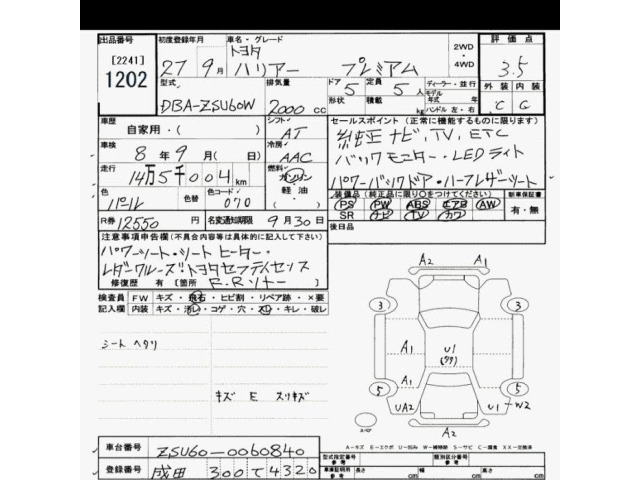 出品番号 初度登録年月 車名・グレード 評価点
[2241] 27年 9月 トヨタ 2WD・4WD
1202 ハリアー プレミアム 3.5
型式 排気量 ドア 定員 ディーラー・並行 外装 内装
DBA-ZSU60W 2000cc 5 5人 モデル年式 年 C C
形状 積載 kg ハンドル 左・右
車歴 シフト セールスポイント (正常に機能するものに限ります)
自家用・( ) AT 純正ナビ,TV,ETC
車検 冷房 バックモニター・LEDライト
8年 9月( 日) AAC パワーバックドア・ハーフレザーシート
走行 燃料
14万5千004km ガソリン 軽油・
色 色替 色コード 装備品(純正品に限り○をつけてください) 新車保証書
パール 070 PS PW ABS エアB AW 有・無
R券 12550円 名変通知期限 9月30日 SR ナビ TV カワ
注意事項申告欄(不具合内容等は具体的に記入して下さい) 後日品
パワーシート・シートヒーター・
レダークルーズ・トヨタセーフティセンス
修復歴 有 [箇所 F.Rソナー ]
検査員記入欄 FW キズ・飛石・ヒビ割・リペア跡・×要
内装 キズ・汚レ・コゲ・穴・スレ・キレ・破レ
シート ヘタリ
キズ E スリキズ
A2
A2
3 3
A1 U1 A1
(99)
5 A1 5
UA2 U1 U1-W2
A2
スペア
A-キズ E-エクボ U-凹み W-補修跡 S-サビ C-腐食 XX-交換済
車台番号 ZSU60-0060840
登録番号 成田 300 て 4320
型式指定番号 参考 類別区分番号 参考
車庫証明用 参考 長さ cm 幅 cm 高さ cm